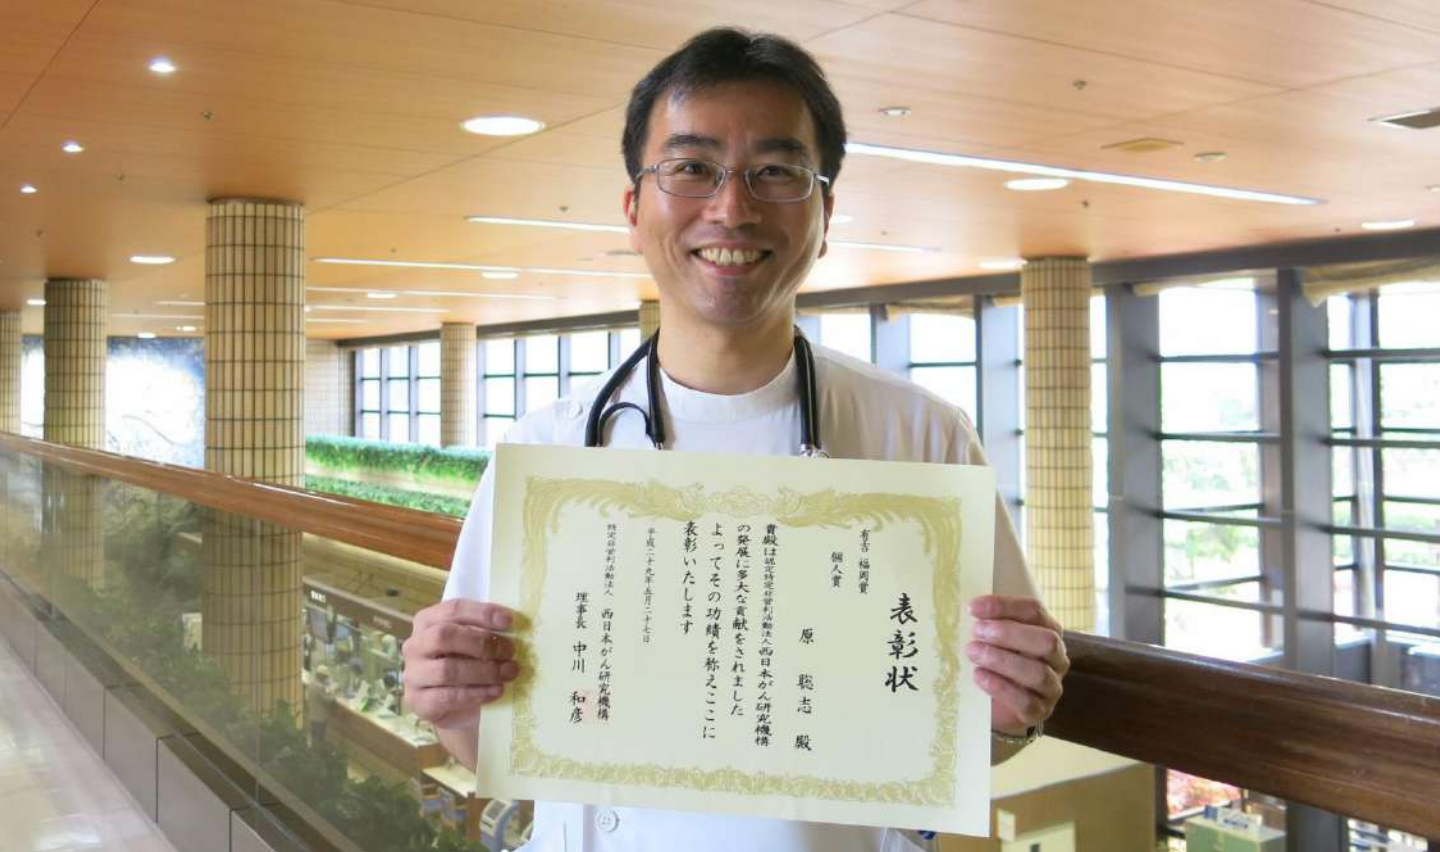 表彰状
有吉・福岡賞
個人賞
原 聡志 殿
貴殿は認定特定非営利活動法人西日本がん研究機構
の発展に多大な貢献をされました
よってその功績を称えここに
表彰いたします
平成二十九年五月二十七日
特定非営利活動法人 西日本がん研究機構
理事長 中川 和彦